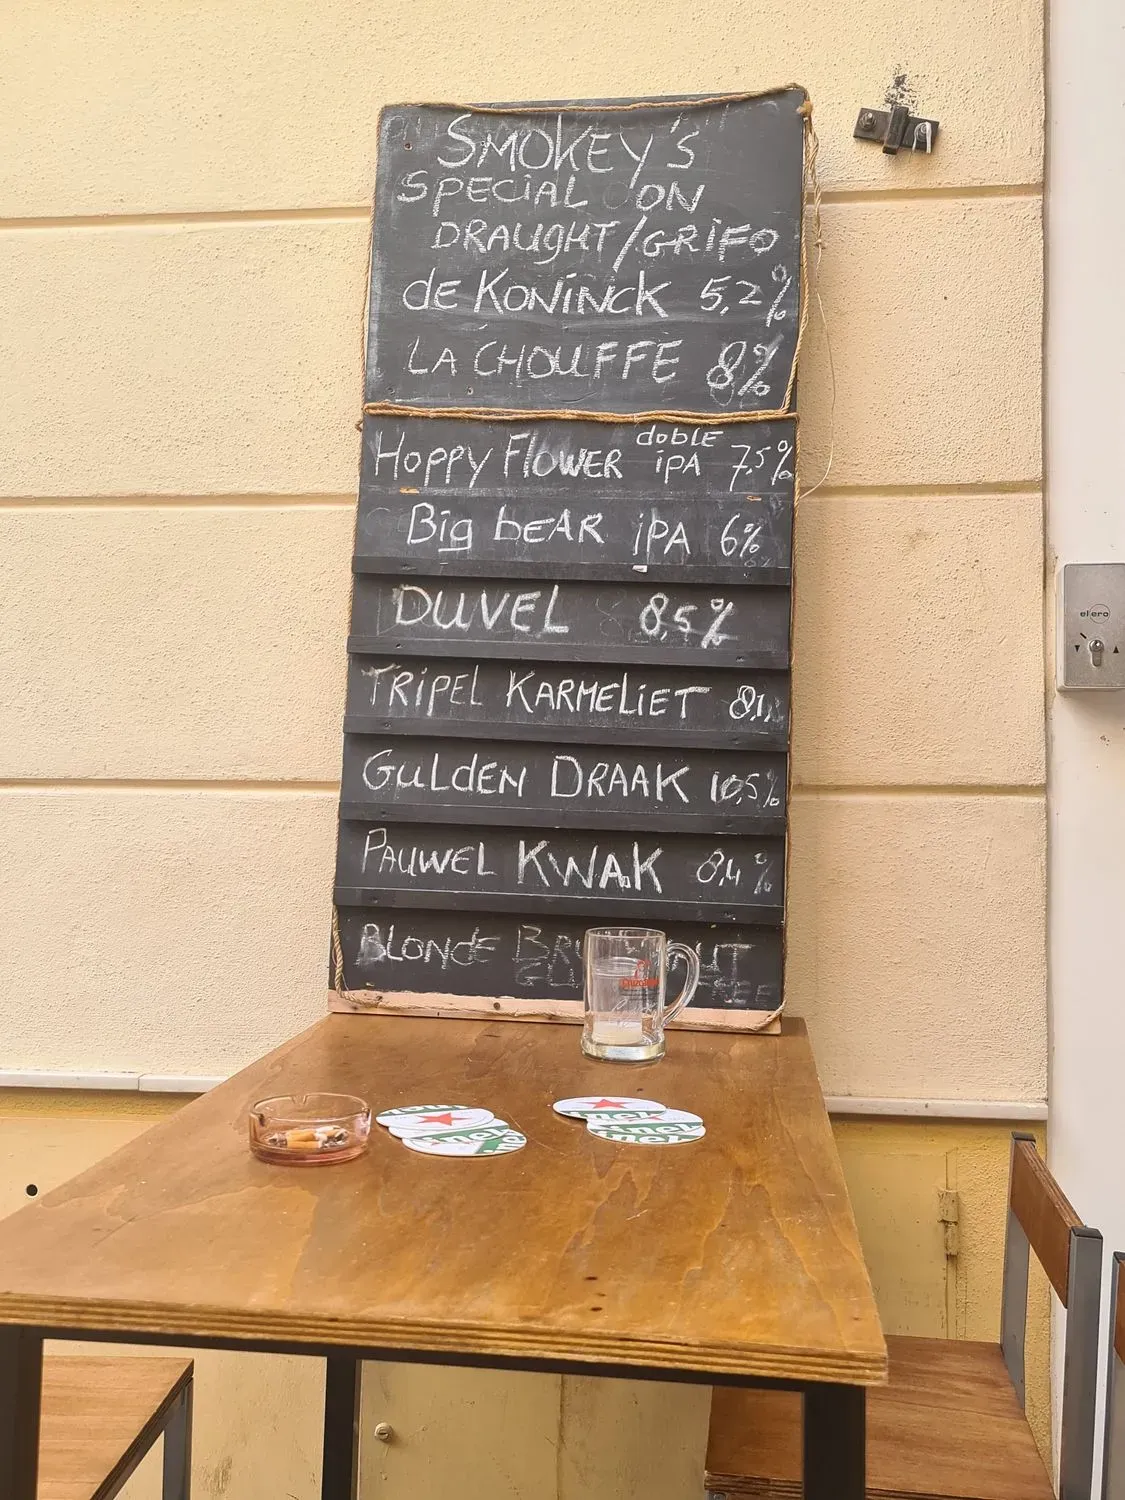 "SMOKEY'S"
SPECIAL ON
DRAUGHT/GRIFO
de KONINCK 5,2%
LA CHOUFFE 8%
HOPPY FLOWER doble IPA 7,5%
Big bEAR iPA 6%
DUVEL 8,5%
TRIPEL KARMELIET 8,1
GULdEN DRAAK 10,5%
PAUWEL KWAK 8,4%
BLONDE
elero